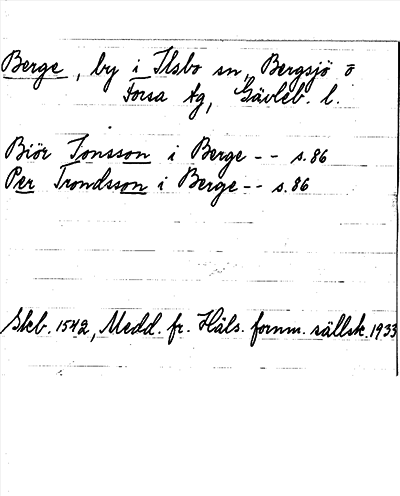 Berge, by i Ilsbo sn, Bergsjö o
Forsa tg, Gävleb. l.
Biör Jonsson i Berge -- s. 86
Per Trondsson i Berge -- s. 86
Skb. 1542, Medd. fr. Häls. fornm. sällsk. 1933